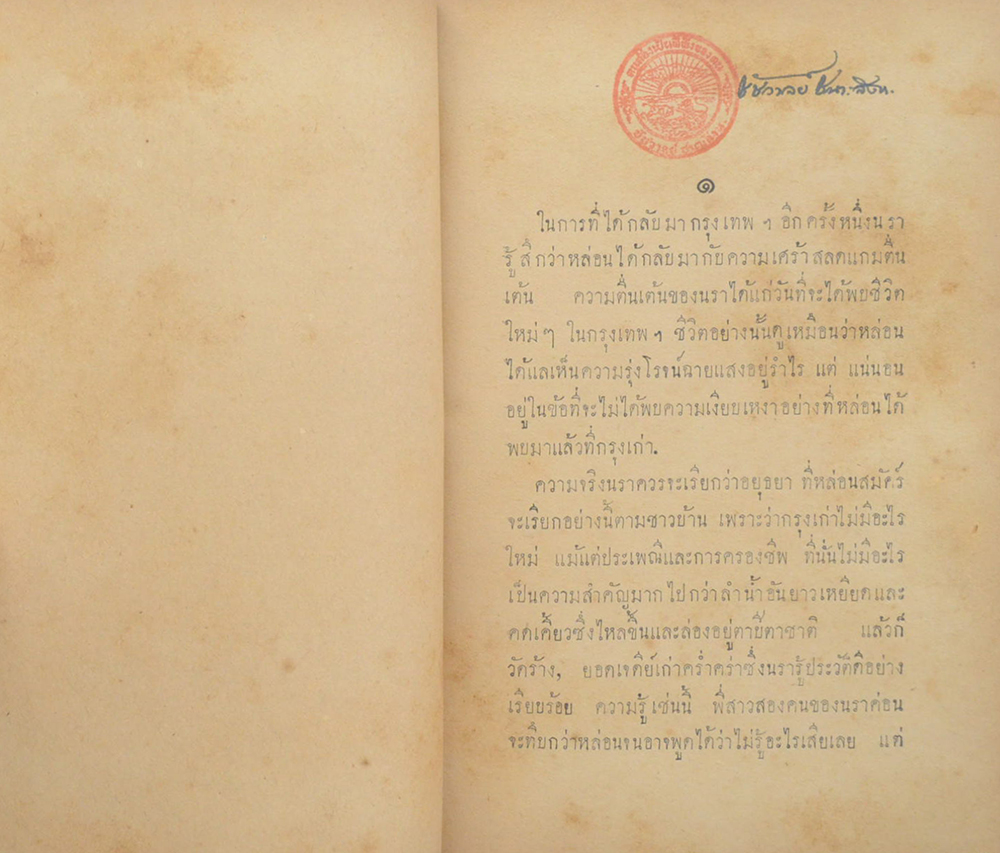 ๑
ในการที่ได้กลับมากรุงเทพ ฯ อีกครั้งหนึ่งนรา
รู้สึกว่าหล่อนได้กลับมากับความเศร้าสลดแกมตื่น
เต้น ความตื่นเต้นของนราได้แก่วันที่จะได้พบชีวิต
ใหม่ๆ ในกรุงเทพ ฯ ชีวิตอย่างนั้นดูเหมือนว่าหล่อน
ได้แลเห็นความรุ่งโรจน์ฉายแสงอยู่รำไร แต่ แน่นอน
อยู่ในข้อที่จะไม่ได้พบความเงียบเหงาอย่างที่หล่อนได้
พบมาแล้วที่กรุงเก่า.
ความจริงนราควรจะเรียกว่าอยุธยา ที่หล่อนสมัคร์
จะเรียกอย่างนี้ตามชาวบ้าน เพราะว่ากรุงเก่าไม่มีอะไร
ใหม่ แม้แต่ประเพณีและการครองชีพ ที่นั่นไม่มีอะไร
เป็นความสำคัญมากไปกว่าลำน้ำอันยาวเหยียดและ
คดเคี้ยวซึ่งไหลขึ้นและล่องอยู่ตาปีตาชาติ แล้วก็
วัดร้าง, ยอดเจดีย์เก่าคร่ำคร่าซึ่งนรารู้ประวัติดีอย่าง
เรียบร้อย ความรู้เช่นนี้ พี่สาวสองคนของนราค่อน
จะทึบกว่าหล่อนจนอาจพูดได้ว่าไม่รู้อะไรเสียเลย แต่